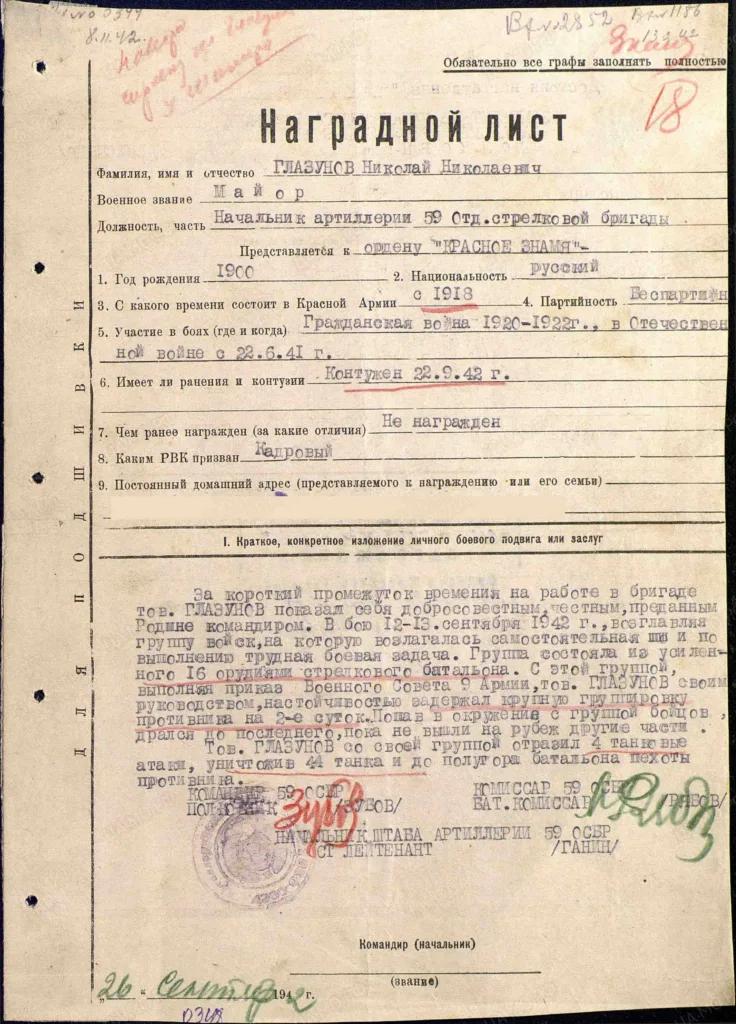 8.11.42.
Обязательно все графы заполнять полностью
18
Наградной лист
Фамилия, имя и отчество ГЛАЗУНОВ Николай Николаевич
Военное звание Майор
Должность, часть Начальник артиллерии 59 Отд.стрелковой бригады
Представляется к ордену "КРАСНОЕ ЗНАМЯ"-
1. Год рождения 1900 2. Национальность русский
3. С какого времени состоит в Красной Армии с 1918 4. Партийность Беспартийн
5. Участие в боях (где и когда) Гражданская война 1920-1922г., в Отечествен
ной войне с 22.6.41 г.
6. Имеет ли ранения и контузии Контужен 22.9.42 г.
7. Чем ранее награжден (за какие отличия) Не награжден
8. Каким РВК призван Кадровый
9. Постоянный домашний адрес (представляемого к награждению или его семьи)
I. Краткое, конкретное изложение личного боевого подвига или заслуг
За короткий промежуток времени на работе в бригаде
тов. ГЛАЗУНОВ показал себя добросовестным, честным, преданным
Родине командиром. В бою 12-13.сентября 1942 г., возглавляя
группу войск, на которую возлагалась самостоятельная и по
выполнению трудная боевая задача. Группа состояла из усилен-
ного 16 орудиями стрелкового батальона. С этой группой,
выполняя приказ Военного Совета 9 Армии, тов. ГЛАЗУНОВ своим
руководством, настойчивостью задержал крупную группировку
противника на 2-е суток. Попав в окружение с группой бойцов ,
дрался до последнего, пока не вышли на рубеж другие части .
Тов. ГЛАЗУНОВ со своей группой отразил 4 танковые
атаки, уничтожив 44 танка и до полутора батальона пехоты
противника.
КОМАНДИР 59 ОСБР КОМИССАР 59 ОСБР
ПОЛКОВНИК Зубов /ЗУБОВ/ БАТ.КОМИССАР /РЯБОВ/
НАЧАЛЬНИК ШТАБА АРТИЛЛЕРИИ 59 ОСБР
СТ ЛЕЙТЕНАНТ /ГАНИН/
Командир (начальник)
(звание)
„26" Сентября 1942 г.
ДЛЯ ПОДШИВКИ